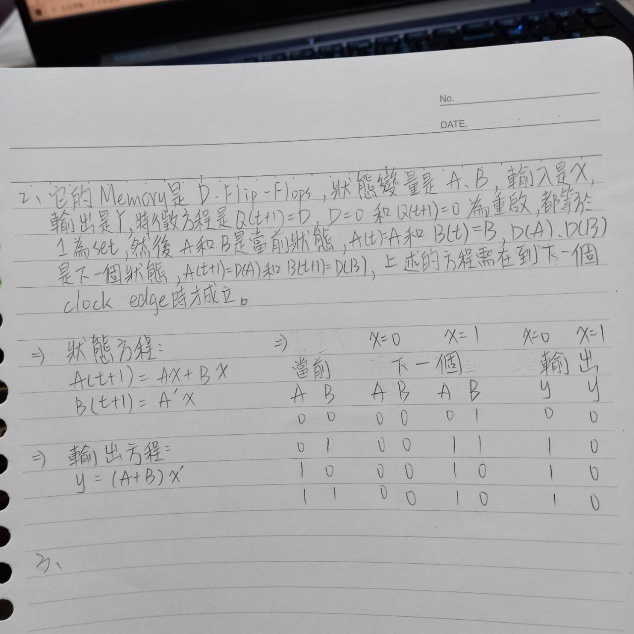 No.
DATE.
2、它的Memory是 D.Flip-Flops, 狀態變量是 A、B, 輸入是X,
輸出是Y, 特徵方程是 Q(t+1)=D, D=0 和 Q(t+1)=0 為重啟, 都等於
1為set, 然後 A和B是當前狀態, A(t)=A和 B(t)=B, D(A)、D(B)
是下一個狀態, A(t+1)=D(A)和 B(t+1)=D(B), 上述的方程需在到下一個
clock edge時才成立。
⇒ 狀態方程:
A(t+1) = AX + BX
B(t+1) = A'X
⇒ 輸出方程:
y = (A+B)X'
⇒ X=0 X=1 X=0 X=1
當前 下一個 輸出
A B A B A B y y
0 0 0 0 0 1 0 0
0 1 0 0 1 1 1 0
1 0 0 0 1 0 1 0
1 1 0 0 1 0 1 0
3、